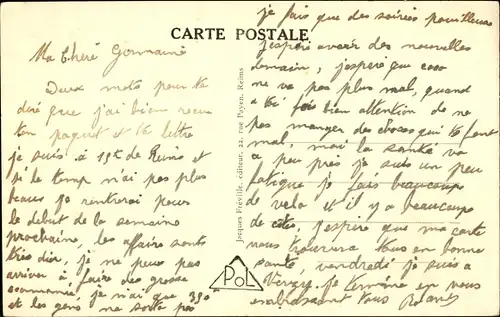 CARTE POSTALE
Ma Chère Germaine
Deux mots pour te
dire que j'ai bien reçu
ton paquet et ta lettre
je suis à 15k de Reims et
si le temp n'ai pas plus
beaux je rentrerai pour
le debut de la semaine
prochaine, les affaire sont
très dur, je ne peux pas
arriver à faire des grosse
je n'ai que 350
et les gens ne sorte pas
je fais que des soirées pouilleuse
j'espère avoir des nouvelles
demain, j'espère que
ne va pas plus mal, quand
a toi fais bien attention de ne
pas manger des choses qui te font
mal, moi la santé va
a peu près je suis un peu
fatigue je fais beaucoup
de velo et il y a beaucoup
de côtes, j'espère que ma carte
vous trouvera tous en bonne
santé, vendredi je suis a
je termine en vous
embrassant tous
Jacques Fréville, éditeur, 22, rue Payen, Reims
POL